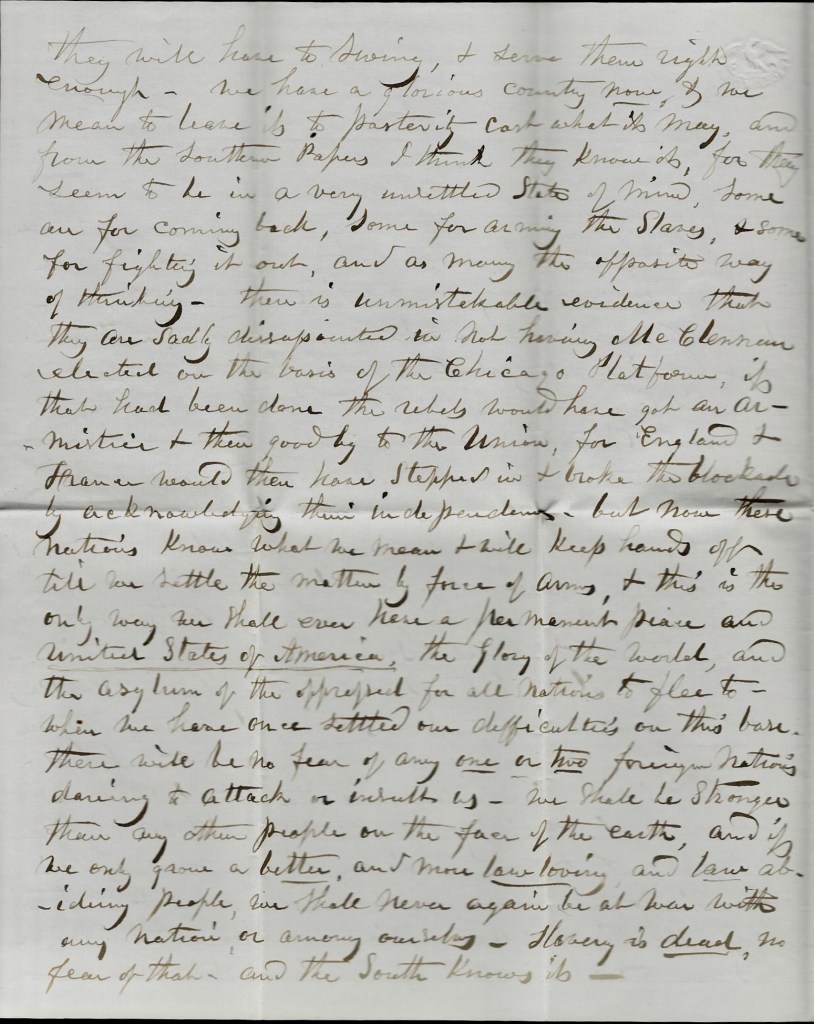 they will have to swing, & serve them right
enough - we have a glorious country now, & we
mean to leave it to posterity cost what it may, and
from the Southern Papers I think they know it, for they
seem to be in a very unsettled State of mind, Some
are for coming back, Some for arming the Slaves, & some
for fighting it out, and as many the opposite way
of thinking - there is unmistakable evidence that
they are sadly dissapointed in not having McClennan
elected on the basis of the Chicago Platform, if
that had been done the rebels would have got an Ar-
-mistice & then good by to the Union, for England &
France would then have stepped in & broke the blockade
by acknowledging their independence - but now these
nations know what we mean & will keep hands off
till we settle the matter by force of arms, & this is the
only way we shall ever have a permanent peace and
United States of America, the Glory of the world, and
the asylum of the oppressed for all Nations to flee to -
when we have once settled our difficulties on this base.
there will be no fear of any one or two foreign Nations
daring to attack or insult us - we shall be Stronger
than any other people on the face of the earth, and if
we only grow a better, and more law loving, and law ab-
-iding people, we shall never again be at war with
any Nation, or among ourselves - Slavery is dead, no
fear of that - and the South Knows it -